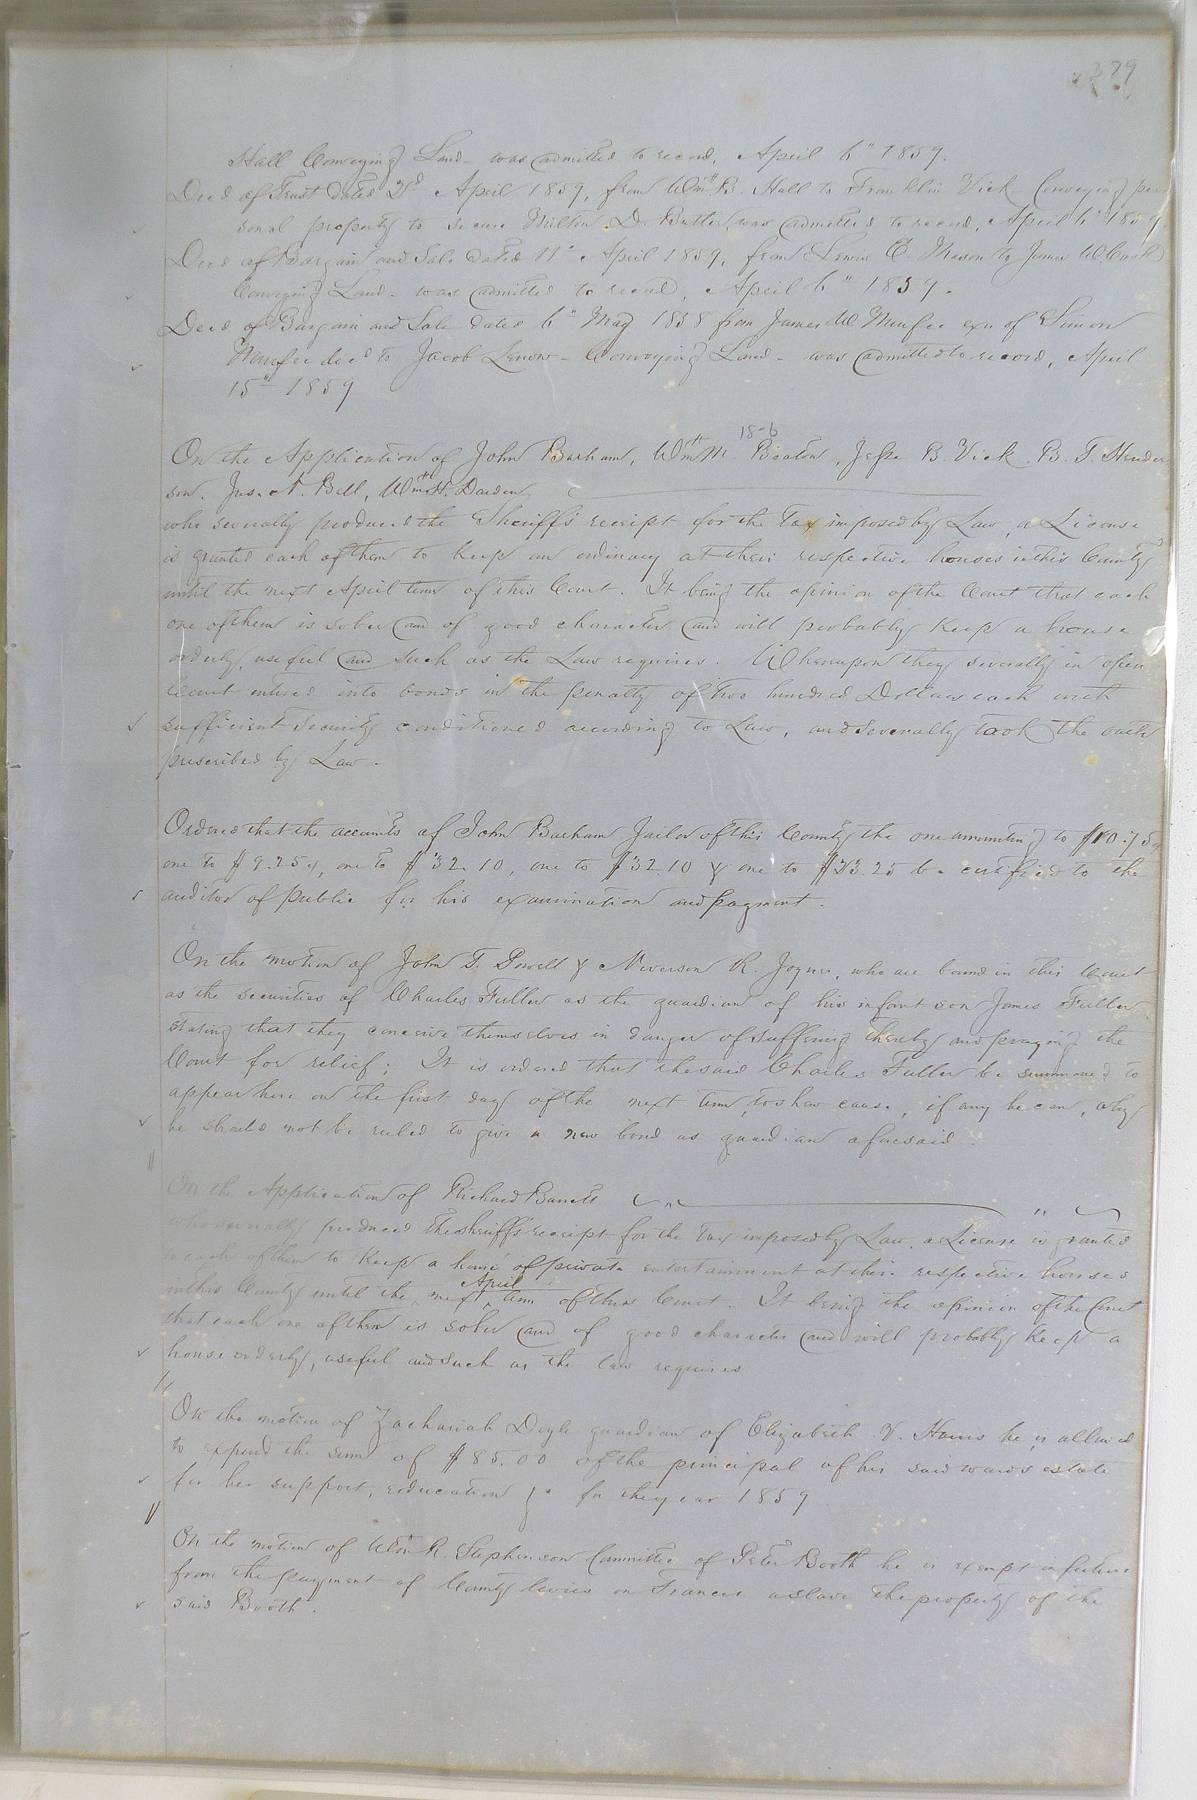 379
Hall Conveying Land - was admitted to record, April 6" 1859.
Deed of Trust dated 2d April 1859, from Wm B. Hall to Franklin Vick Conveying per
sonal property to secure Milton D. Butler, was admitted to record, April 6" 1859
Deed of Bargain and Sale dated 11" April 1859, from Lewis C. Mason to James W Cook
Conveying Land - was admitted to record, April 6" 1859.
Deed of Bargain and Sale dated 6" May 1858 from James W Murfee exr of Simon
Murfee decd to Jacob Lenow - Conveying Land - was admitted to record, April
15" 1859
18-6
On the Application of John Barham, Wm M. Beaton, Jesse B. Vick. B. T. Hender
son. Jas. A. Bell, Wm H. Darden
who severally produced the Sheriff's receipt for the Tax imposed by Law, a License
is granted each of them to Keep an ordinary at their respective houses in this County
until the next April term of this Court. It being the opinion of the Court that each
one of them is sober and of good character and will probably Keep a house
orderly, useful and such as the Law requires. Whereupon they severally in open
Court entered into bonds in the penalty of Two hundred Dollars each with
sufficient security conditioned according to Law, and severally took the oath
prescribed by Law.
Ordered that the accounts of John Barham Jailor of this County the one amounting to $10.75,
one to $9.25, one to $32.10, one to $32.10 & one to $33.25 be certified to the
auditor of public for his examination and payment.
On the motion of John T. Powell & Neverson R. Joyner, who are bound in this Court
as the securities of Charles Fuller as the guardian of his infant son James Fuller
stating that they conceive themselves in danger of suffering thereby and praying the
Court for relief; It is ordered that the said Charles Fuller be summoned to
appear here on the first day of the next term, to shew cause, if any he can, why
he should not be ruled to give a new bond as guardian aforesaid.
On the Application of Richard Barrett " "
who severally produced the sheriff's receipt for the Tax imposed by Law, a License is granted
to each of them to Keep a house of private entertainment at their respective houses
in this County until the next April term of this Court. It being the opinion of the Court
that each one of them is sober and of good character and will probably Keep a
house orderly, useful and such as the law requires
On the motion of Zachariah Doyle guardian of Elizabeth V. he is allowed
to expend the sum of $85.00 of the principal of his said wards estate
for her support, education &c for the year 1859
On the motion of Wm R. Stephenson Committee of Peter Booth he is exempt in future
from the payment of County levies on Frances a slave the property of the
said Booth.